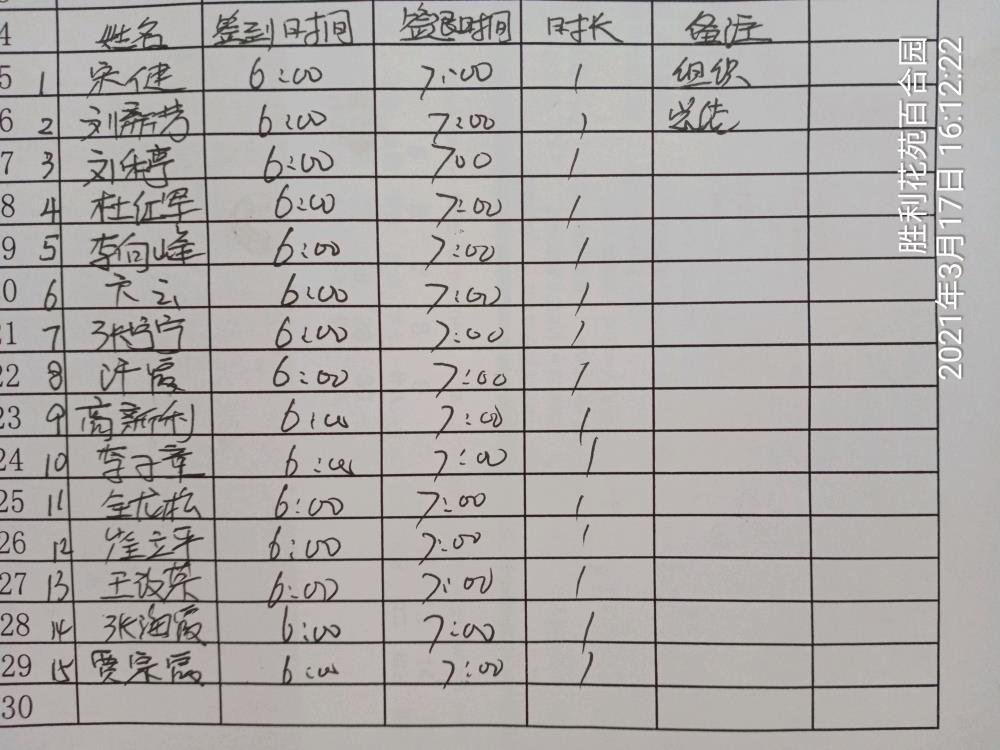 4 姓名 签到时间 签退时间 时长 备注
5 1 宋健 6:00 7:00 1 组织
6 2 刘希芳 6:00 7:00 1
7 3 刘 亭 6:00 700 1
8 4 杜红军 6:00 7:00 1
9 5 李向峰 6:00 7:00 1
0 6 云 6:00 7:00 1
21 7 张宁宁 6:00 7:00 1
22 8 许霞 6:00 7:00 1
23 9 高新利 6:00 7:00 1
24 10 李子章 6:00 7:00 1
25 11 松 6:00 7:00 1
26 12 崔立平 6:00 7:00 1
27 13 王改英 6:00 7:00 1
28 14 张海霞 6:00 7:00 1
29 15 贾宗富 6:00 7:00 1
30
胜利花苑百合园
2021年3月17日 16:12:22